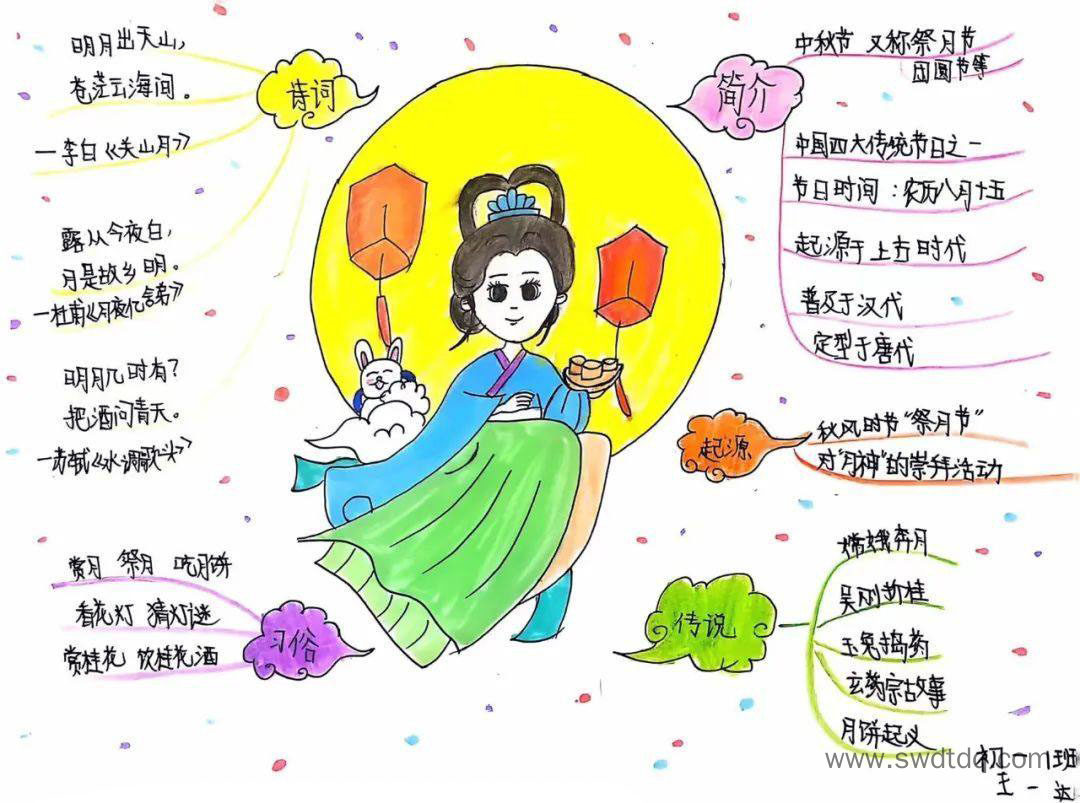 诗词
明月出天山，
苍茫云海间。
—李白《关山月》
露从今夜白，
月是故乡明。
—杜甫《月夜忆舍弟》
明月几时有？
把酒问青天。
—苏轼《水调歌头》
习俗
赏月 祭月 吃月饼
看花灯 猜灯谜
赏桂花 饮桂花酒
简介
中秋节 又称祭月节
团圆节等
中国四大传统节日之一
节日时间：农历八月十五
起源于上古时代
普及于汉代
定型于唐代
起源
秋风时节“祭月节”
对“月神”的崇拜活动
传说
嫦娥奔月
吴刚折桂
玉兔捣药
玄宗故事
月饼起义
www.swdtdq.com
初一 1班
王一达